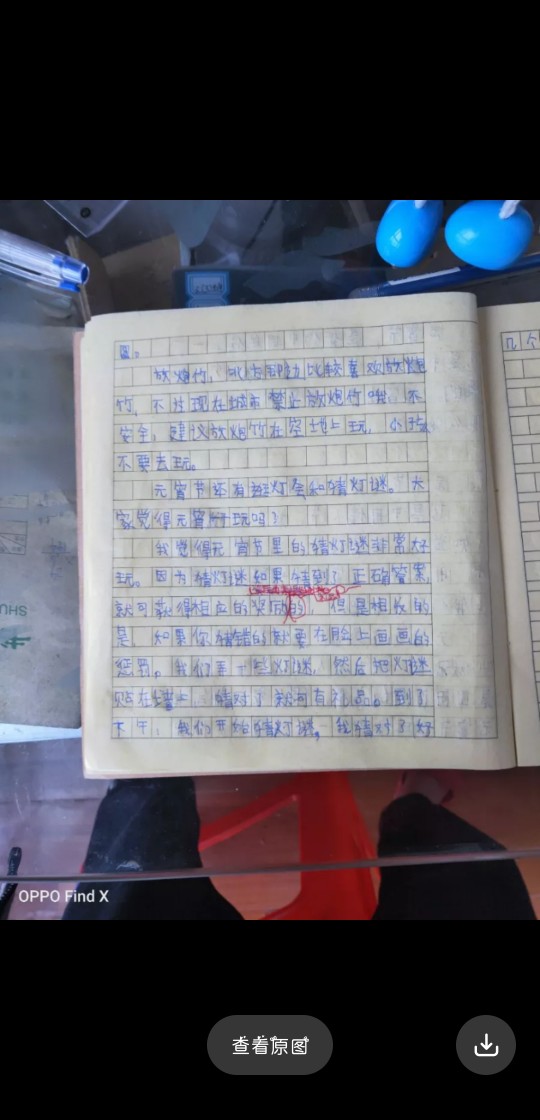 圆。
放炮竹，我去那边比较喜欢放炮
竹，不过现在城市禁止放炮竹呢，不
安全，建议放炮竹在空地上玩，小孩
不要去玩。
元宵节还有逛灯会和猜灯谜。大
家觉得元宵好玩吗？
我觉得元宵节里的猜灯谜非常好
玩。因为猜灯谜如果猜到了正确答案，
就可获得相应的奖励的，但是相反的
是，如果你猜错的就要在脸上画画的
惩罚。我们弄了些灯谜，然后把灯谜
贴在墙上，猜对了就可有礼品。到了
下午，我们开始猜灯谜，我猜对了好
几个
SHU
OPPO Find X
查看原图